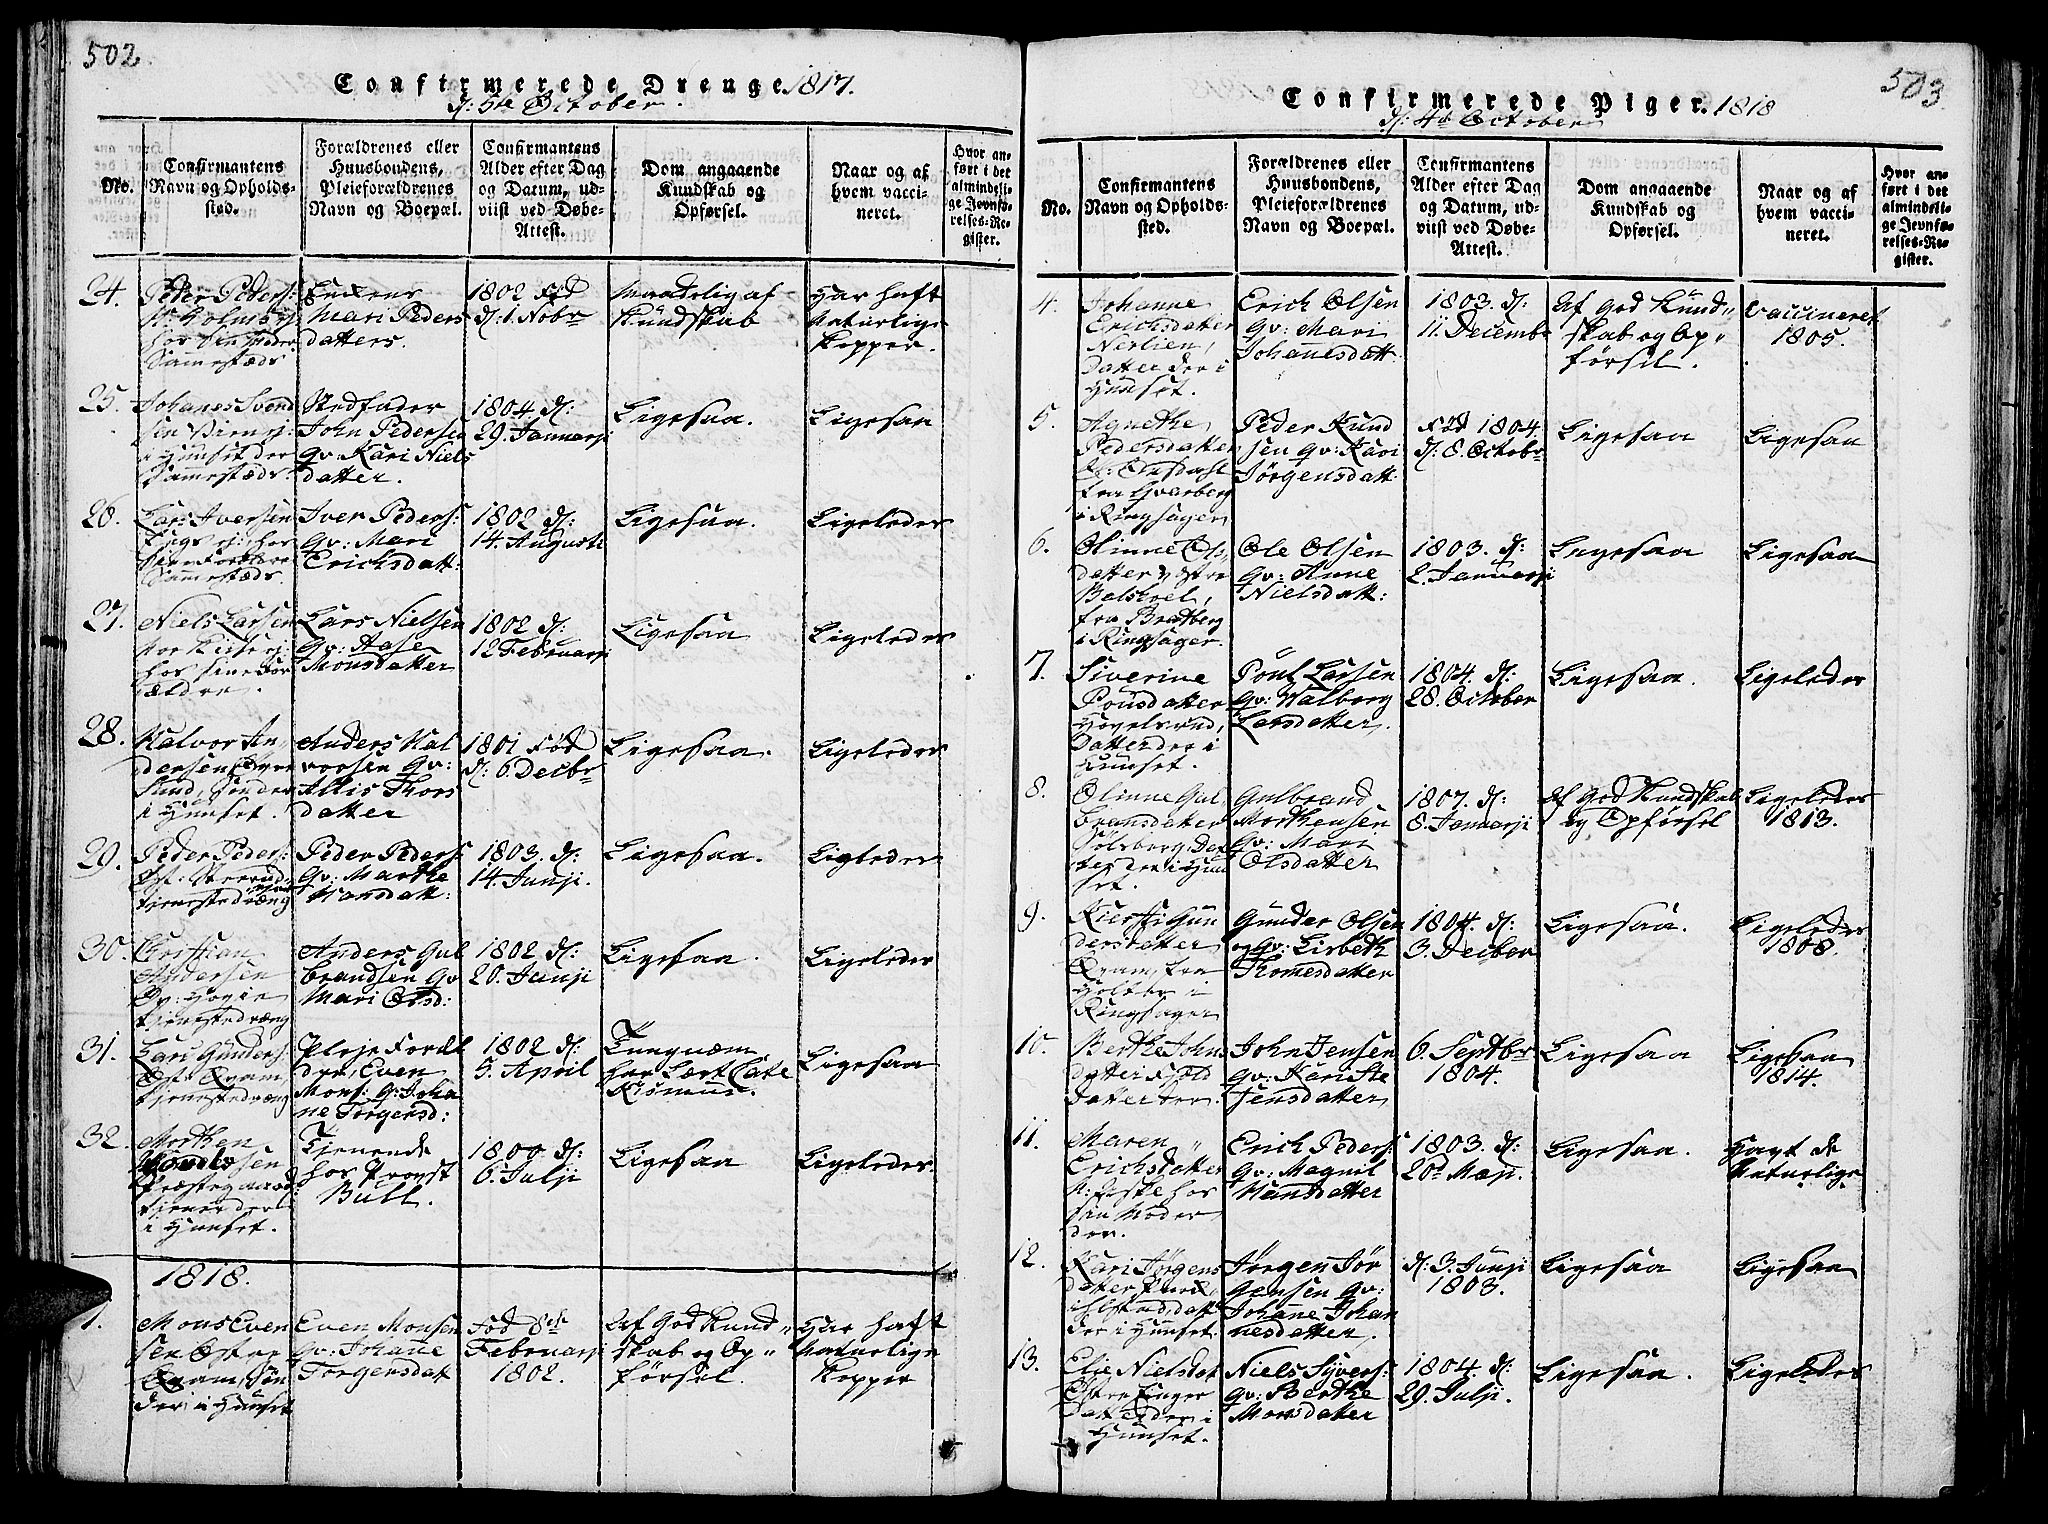 502.
Confirmerede Drenge 1817.
d: 5te October.
No.
Confirmantens
Navn og Opholds-
sted.
Forældrenes eller
Huusbondens,
Pleieforældrenes
Navn og Boepæl.
Confirmantens
Alder efter Dag
og Datum, ud-
viist ved Døbe-
Attest.
Dom angaaende
Kundskab og
Opførsel.
Naar og af
hvem vacci-
neret.
Hvor an-
ført i det
almindeli-
ge Jevnfø-
relses-Re-
gister.
24.
Peder Peders:
hos sin Moder
Sammestæds
Mari Peders
datters.
1802 Fød
d: 1. Nobr
Maadelig af
Kundskab
Har haft
Naturlige
Kopper.
25.
Johanes Svend
sen
i Hunset der
Sammestæds.
Stedfader
John Pedersen
Gv: Kari Niels
datter.
1804. d:
29. Januarji
Ligesaa.
Ligesaa
26.
Lars Iversen
hos
Sine Forældre
Sammestæds.
Iver Peders:
Gv: Mari
Erichsdatt:
1802 d:
14. Augusti
Ligesaa.
Ligeledes
27.
Niels Larsen
hos sine For
ældre.
Lars Nielsen
Gv: Aase
Monsdatter
1802 d:
12 Februarji
Ligesaa
Ligeledes
28.
Halvor An-
dersen
Lund, Sønder
i Hunset.
Anders Hal
vorsen Gv:
Allis Thors
datter
1801 Fød
d: 6. Decbr
Ligesaa.
Ligeledes
29.
Peder Peders:
tjenestedræng
Peder Peders:
Gv: Marthe
Hansdatt:
1803. d:
14. Junji.
Ligesaa.
Ligeledes
30.
Christian
Andersen
tjenestedræng
Anders Gul
brandsen Gv
Mari Olsd:
1802 d:
20. Junji
Ligesaa.
Ligeledes
31.
Lars Gunders:
Øst: Qvam,
tjenestedræng
Pleje Foræl
dre, Even
Mons: G: Joha
ne Jørgensd:
1802 d:
5. April
Tungnæm
har Lært Cate
Kismus.
Ligesaa
32.
Morthen
Præstegaard
tjener der
i Hunset.
Tjenende
hos Provst
Bull.
1800. d:
6. Julji
Ligesaa
Ligeledes.
1818.
1.
Mons Even
sen Østre
Qvam, Søn
der i Hunset
Even Monsen
Gv: Johane
Jørgensdat
Fød 8de
Februarji
1802.
Af God Kund"
skab og Op"
førsel.
Har haft
Naturlige
Kopper
503
Confirmerede Piger. 1818
d: 4de October
No.
Confirmantens
Navn og Opholds-
sted.
Forældrenes eller
Huusbondens,
Pleieforældrenes
Navn og Boepæl.
Confirmantens
Alder efter Dag
og Datum, ud-
viist ved Døbe-
Attest.
Dom angaaende
Kundskab og
Opførsel.
Naar og af
hvem vacci-
neret.
Hvor an-
ført i det
almindeli-
ge Jevnfø-
relses-Re-
gister.
4.
Johanne
Erichsdatter
Nerlien,
Datter der i
Hunset.
Erich Olsen
Gv: Mari
Johannesdatt:
1803. d:
11. Decembr
Af God Kund"
skab og Op"
førsel.
Vaccineret
1805.
5.
Agnethe
Pedersdatter
fra Qvarberg
i Ringsager
Peder Knud
sen Gv: Kari
Jørgensdatt:
Fød 1804
d: 8. Octobr
Ligesaa
Ligesaa
6.
Olinne Ols
datter Østre
fra Bratberg
i Ringsager.
Ole Olsen
Gv: Anne
Nielsdatt:
1803. d:
2. Januarji
Ligesaa
Ligesaa
7.
Siverine
Poulsdatter
Hovelsrud,
Datter der i
Hunset.
Poul Larsen
Gv: Valborg
Larsdatter.
1804. d:
28. October
Ligesaa.
Ligeledes
8.
Olinne Gul,
bransdatter
Sølvberg, Dat
ter der i Hun
set.
Gulbrand
Morthensen
Gv: Mari
Olsdatter
1807. d:
8. Januarji
Af God Kundskab
og Opførsel
Ligeledes
1813.
9.
Kiersti Gun
dersdatter
Qvam, fra
Holter i
Ringsager
Gunder Olsen
og Gv: Lisbeth
Thomesdatter
1804. d:
3. Decber
Ligesaa.
Ligeledes
1808.
10.
Berthe Johns
datter
Datter der.
John Jensen
Gv: Kariste
Jensdatter
6. Septbr
1804.
Ligesaa
Ligesaa
1814.
11.
Maren
Erichsdatter
N: Fiske hos
sin Moder
der.
Erich Peders:
Gv: Magnil
Hansdatter
1803. d:
20de Maji.
Ligesaa.
Havt de
Naturlige
12.
Kari Jørgens
datter
der i Hunset.
Jørgen Jør
gensen Gv:
Johanne Johan
nesdatter.
d: 3. Junji
1803.
Ligesaa
Ligesaa
13.
Elie Nielsdat
Østre Enger
Datter der i
Hunset.
Niels Syvers:
Gv: Berthe
Monsdatter
1804. d:
29. Julji.
Ligesaa.
Ligeledes